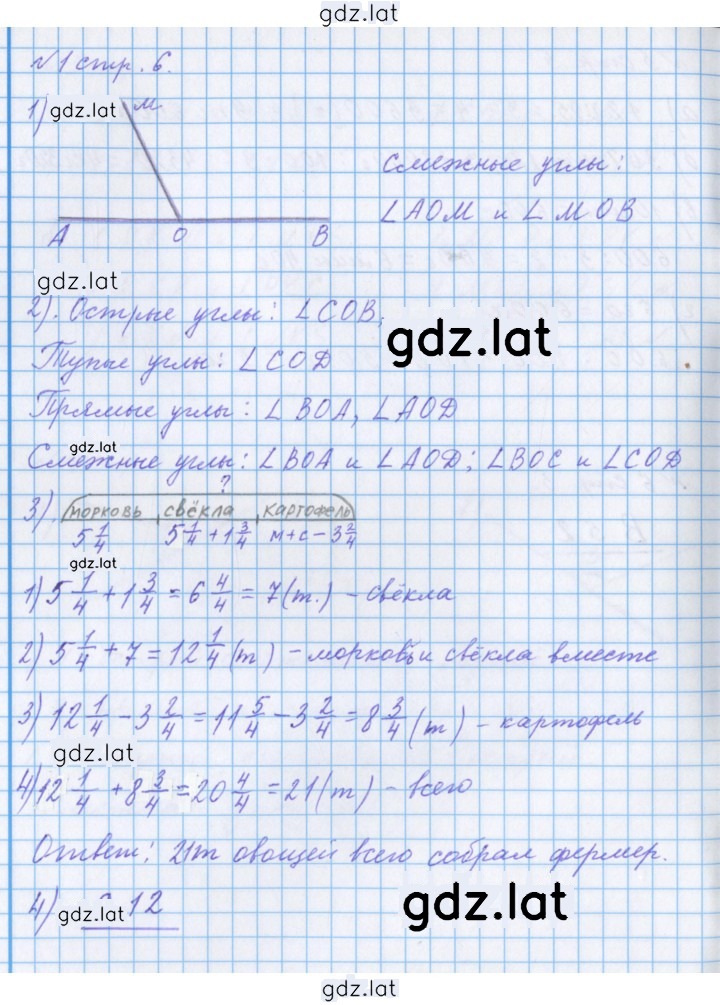 gdz.lat
№1 стр. 6.
1) gdz.lat M
Смежные углы:
∠AOM и ∠MOB
A O B
gdz.lat
2). Острые углы: ∠COB;
gdz.lat
Тупые углы: ∠COD
Прямые углы: ∠BOA, ∠AOD
gdz.lat
Смежные углы: ∠BOA и ∠AOD; ∠BOC и ∠COD
?
3). морковь свёкла картофель
5 1/4 5 1/4 + 1 3/4 м+с – 3 2/4
gdz.lat
1) 5 1/4 + 1 3/4 = 6 4/4 = 7 (т.) – свёкла
2) 5 1/4 + 7 = 12 1/4 (т) – морковь и свёкла вместе
3) 12 1/4 – 3 2/4 = 11 5/4 – 3 2/4 = 8 3/4 (т) – картофель
gdz.lat
4) 12 1/4 + 8 3/4 = 20 4/4 = 21 (т) – всего
Ответ: 21т овощей всего собрал фермер.
4) gdz.lat 12
gdz.lat
gdz.lat